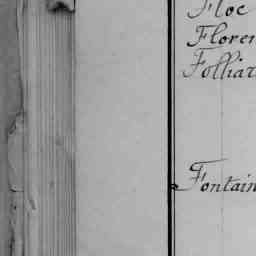 Floc
Floren
Folliar
Fontain